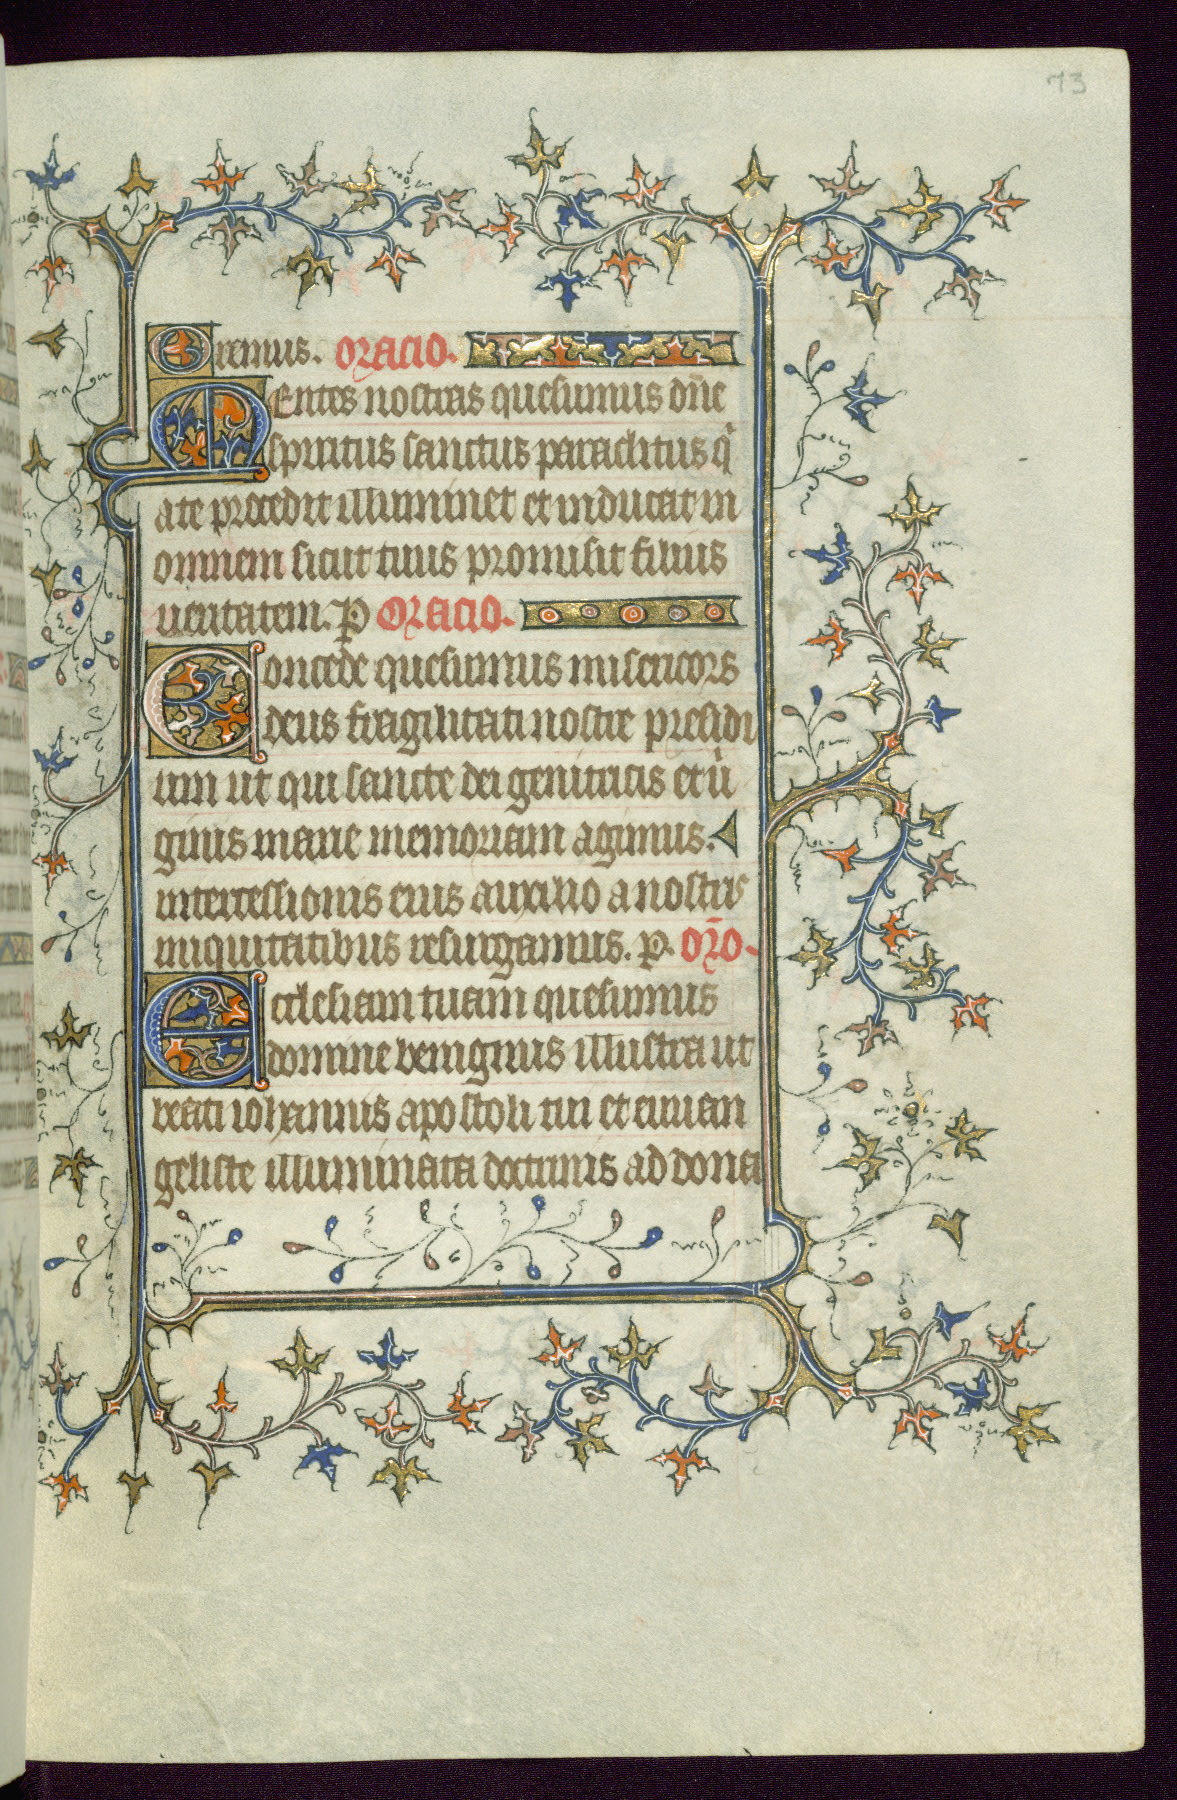 73
Oremus. Oracio.
Mentes nostras quesumus dñe
spiritus sanctus paraclitus q̄
a te procedit illuminet et inducat in
omnem sicut tuus promisit filius
ueritatem. P Oracio.
Concede quesumus misericors
deus fragilitati nostre presidi
um ut qui sancte dei genitricis et ũ
ginis marie memoriam agimus.
intercessionis eius auxilio a nostris
iniquitatibus resurgamus. p. or̄o.
Ecclesiam tuam quesumus
domine benignus illustra ut
beati iohannis apostoli tui et euuan
geliste illuminata doctrinis ad dona